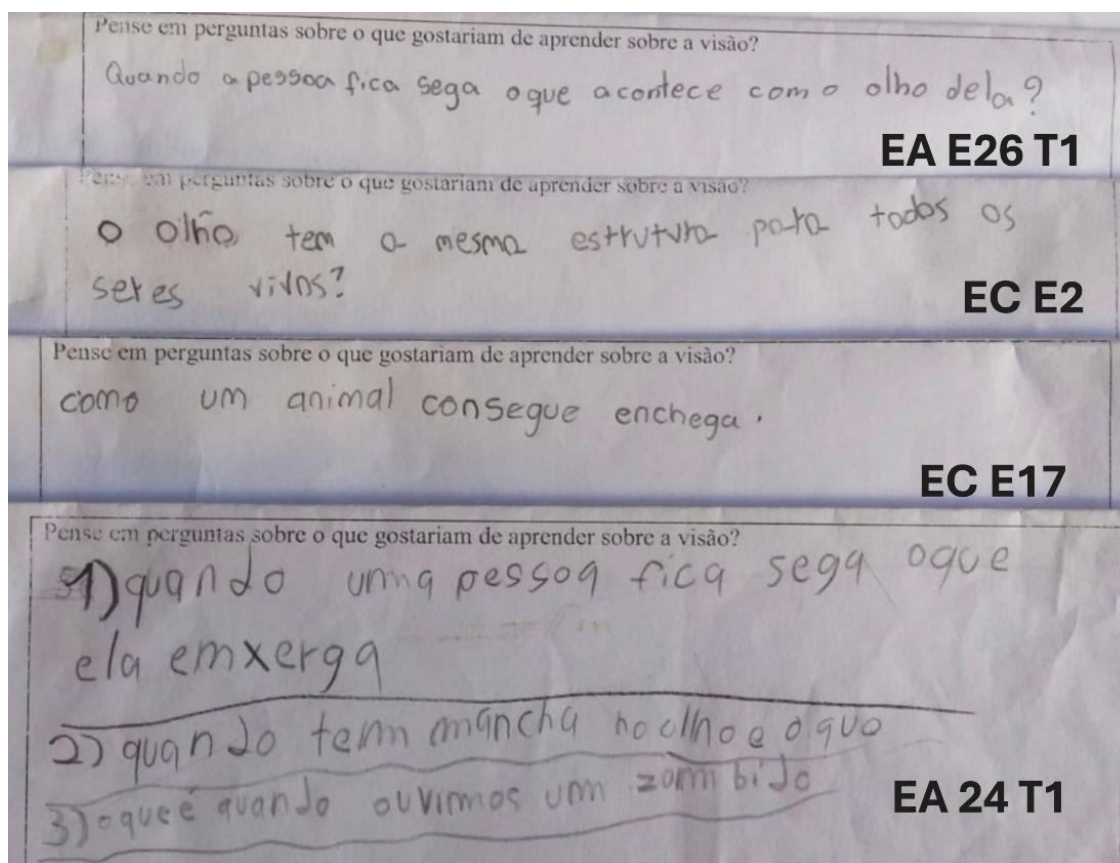 Pense em perguntas sobre o que gostariam de aprender sobre a visão?
Quando a pessoa fica sega oque acontece como olho dela?
EA E26 T1
Pense em perguntas sobre o que gostariam de aprender sobre a visão?
O olho tem a mesma estrutura para todos os
seres vivos?
EC E2
Pense em perguntas sobre o que gostariam de aprender sobre a visão?
como um animal consegue enchega.
EC E17
Pense em perguntas sobre o que gostariam de aprender sobre a visão?
1) quando uma pessoa fica sega oque
ela emxerga
2) quando tem mancha no olho e o quo
3) oqueé quando ouvimos um zombido
EA 24 T1